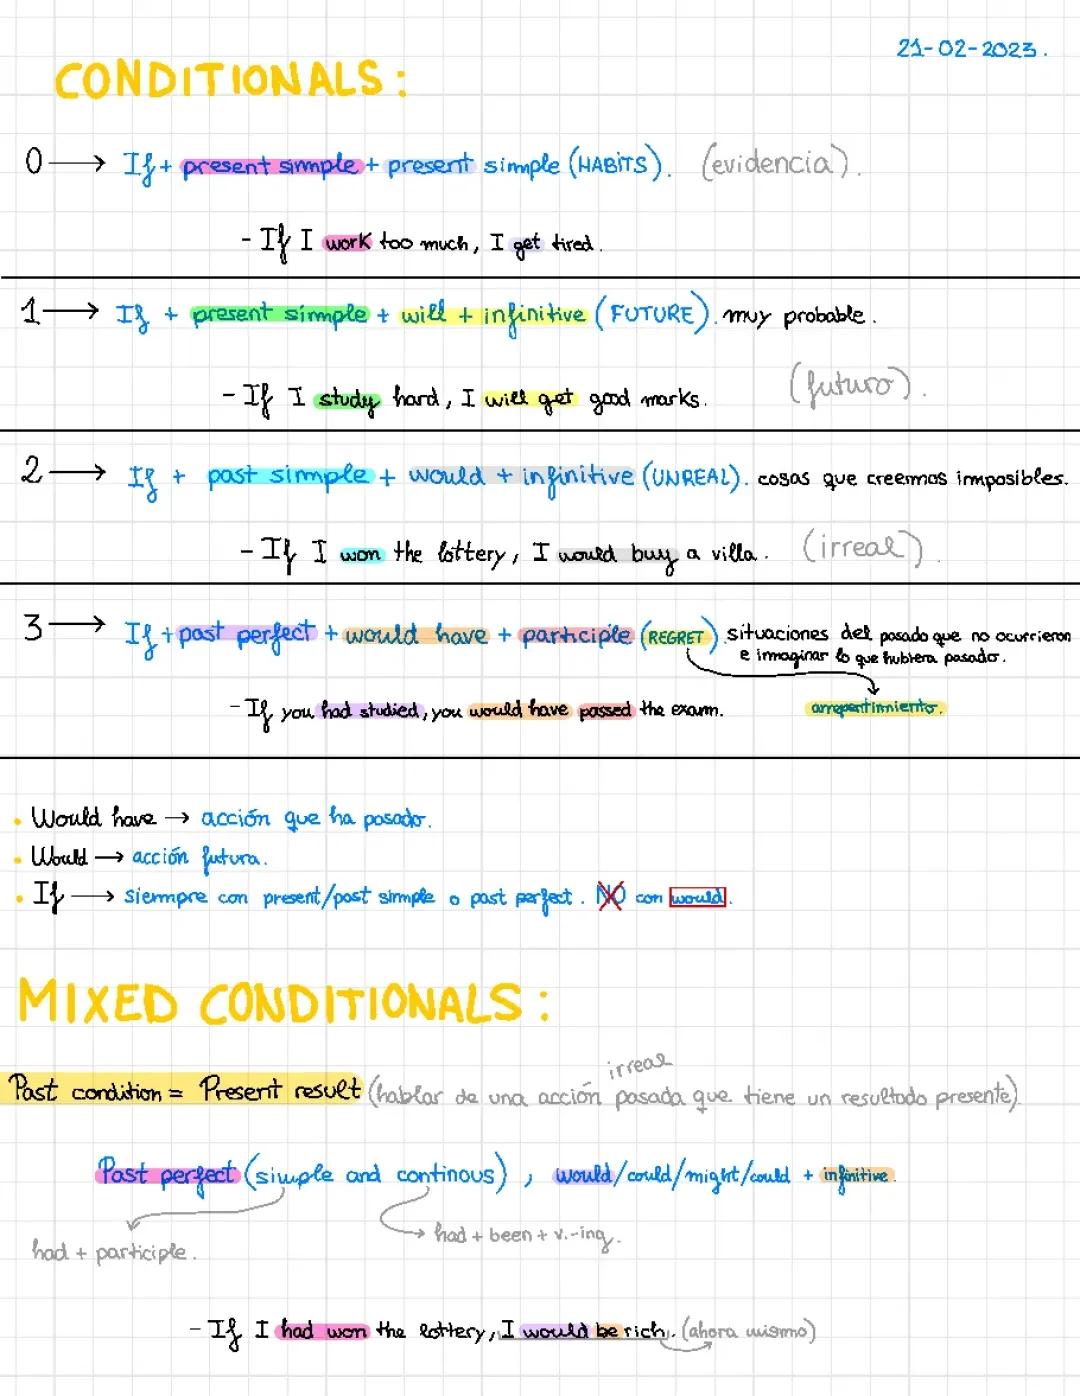 21-02-2023.
CONDITIONALS:
0 → If + present simple + present simple (HABITS). (evidencia).
- If I work too much, I get tired.
1 → If + present simple + will + infinitive (FUTURE). muy probable.
- If I study hard, I will get good marks. (futuro).
2 → If + past simple + would + infinitive (UNREAL). cosas que creemos imposibles.
- If I won the lottery, I would buy a villa. (irreal).
3 → If + past perfect + would have + participle (REGRET). situaciones del pasado que no ocurrieron
e imaginar lo que hubiera pasado.
- If you had studied, you would have passed the exam. arrepentimiento.
• Would have → acción que ha pasado.
• Would → acción futura.
• If → siempre con present/past simple o past perfect. NO con would.
MIXED CONDITIONALS:
irreal
Past condition = Present result (hablar de una acción pasada que tiene un resultado presente).
Past perfect (simple and continous), would/could/might/could + infinitive.
had + participle.
→ had + been + v.-ing.
- If I had won the lottery, I would be rich. (ahora mismo)